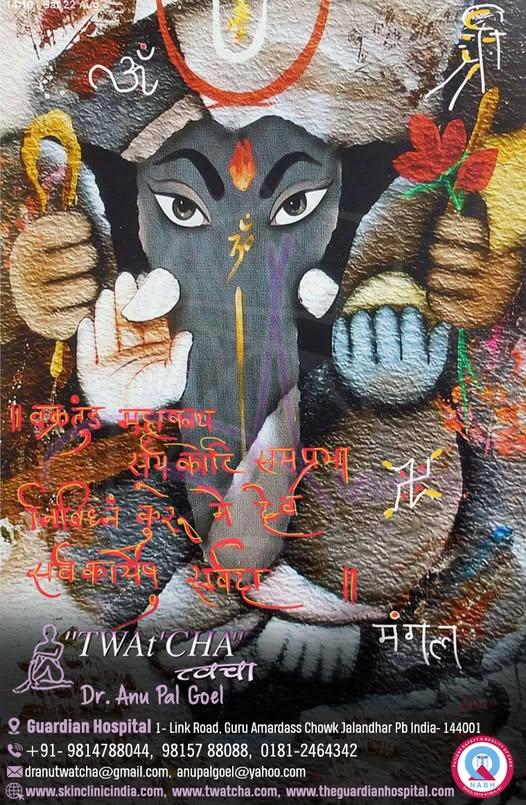 14:10 Sat 22 Aug
ॐ
श्री
ॐ
॥ वक्रतुंड महाकाय
सूर्य कोटि समप्रभा
निर्विघ्नं कुरु मे देव
सर्व कार्येषु सर्वदा ॥
मंगल
"TWAt'CHA"
त्वचा
Dr. Anu Pal Goel
Guardian Hospital 1- Link Road, Guru Amardass Chowk Jalandhar Pb India- 144001
+91- 9814788044, 98157 88088, 0181-2464342
dranutwatcha@gmail.com, anupalgoel@yahoo.com
www.skinclinicindia.com, www.twatcha.com, www.theguardianhospital.com
NABH